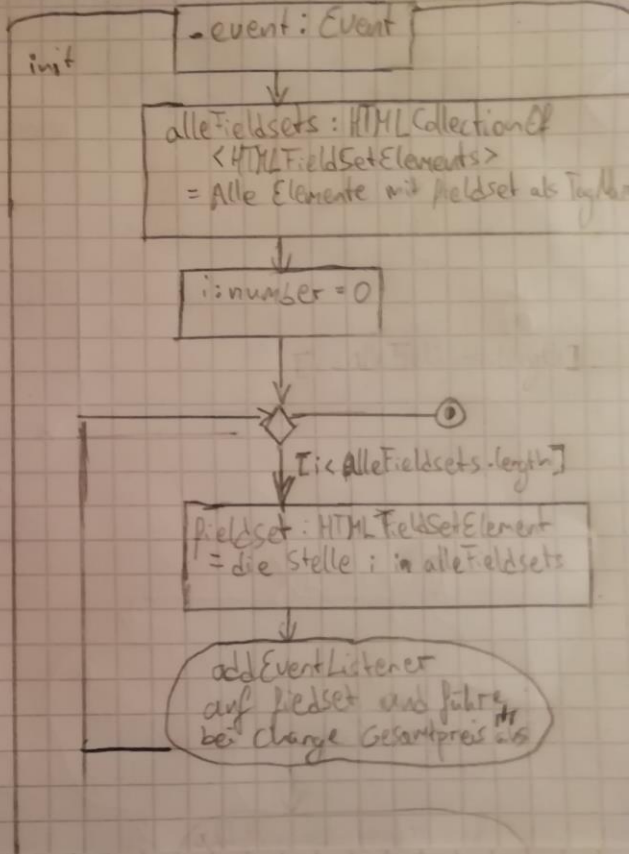 _event: Event
init
alleFieldsets: HTMLCollectionOf
<HTMLFieldSetElements>
= Alle Elemente mit fieldset als
i: number = 0
[i< alleFieldsets.length]
fieldset: HTMLFieldSetElement
= die Stelle i in alleFieldsets
addEventListener
auf fiedset und führe
bei change Gesamtpreis